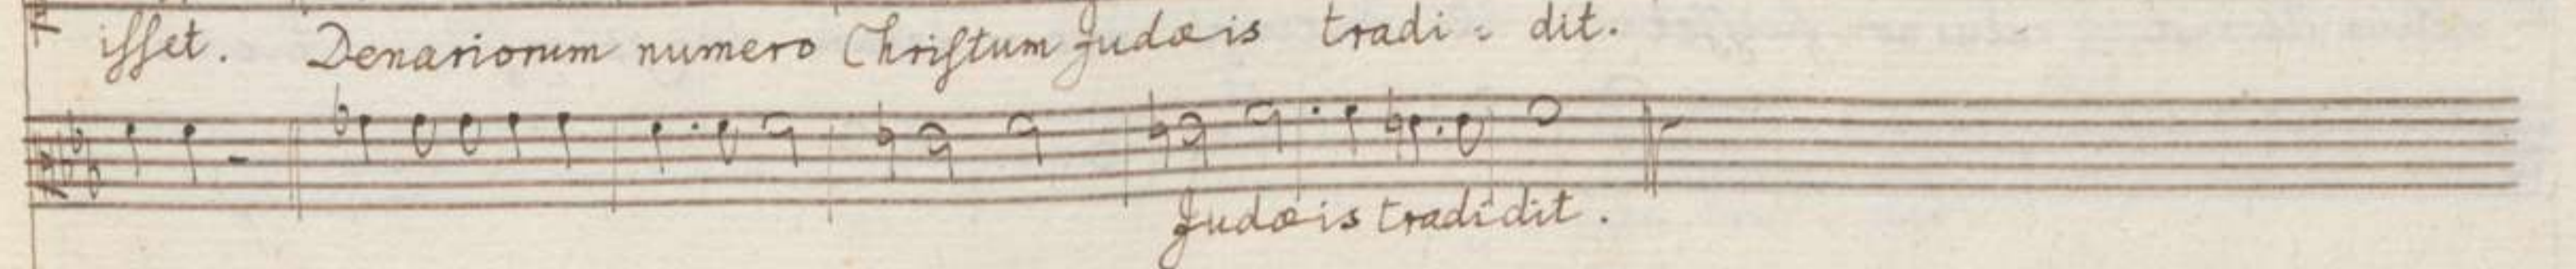 iſſet. Denariorum numero Chriſtum Judæis tradi = dit.
Judæis tradidit.